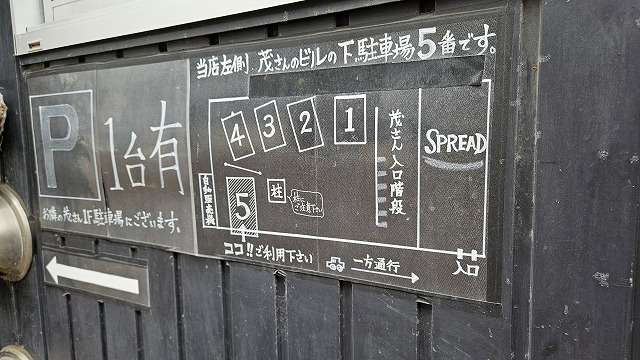 当店左側 茂さんのビルの下駐車場5番です。
P 1台有
お隣の茂さん1F駐車場にございます。
4 3 2 1
茂さん入口階段
SPREAD
自動販売機
5
柱
柱にご注意下さい
ココ!!ご利用下さい
一方通行
入口